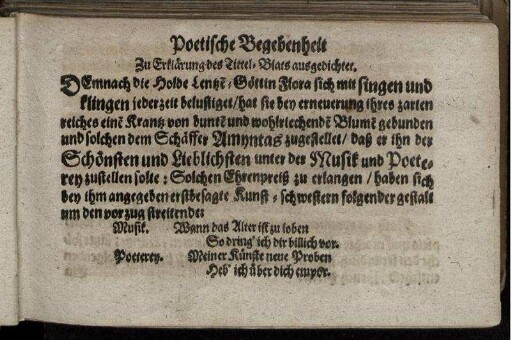 Poetische Begebenheit
Zu Erklärung des Tittel-Blats ausgedichtet.
DEmnach die Holde Lentzẽ-Göttin Flora sich mit singen und
klingẽ jederzeit belustiget/hat sie bey erneuerung ihres zarten
reiches einẽ Krantz von buntẽ und wohlriechendẽ Blumẽ gebunden
und solchen dem Schäffer Amyntas zugestellet/ daß er ihn der
Schönsten und Lieblichsten unter der Musik und Poete-
rey zustellen solte: Solchen Ehrenpreiß zu erlangen / haben sich
bey ihm angegeben erstbesagte Kunst-schwestern folgender gestalt
um den vorzug streitende:
Musik. Wann das Alter ist zu loben
So dring' ich dir billich vor.
Poeterey. Meiner Künste neue Proben
Heb' ich über dich empor.